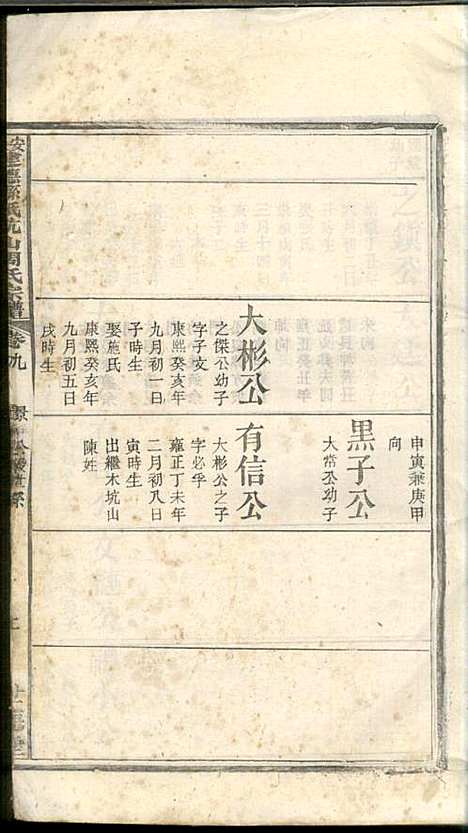 大彬公
之傑公幼子
字子文
康熙癸亥年
九月初一日
子時生
娶施氏
康熙癸亥年
九月初五日
戌時生
申寅兼庚甲
向
黑子公
大常公幼子
有信公
大彬公之子
字必孚
雍正丁未年
二月初八日
寅時生
出繼木坑山
陳姓
氏宗譜
卷九